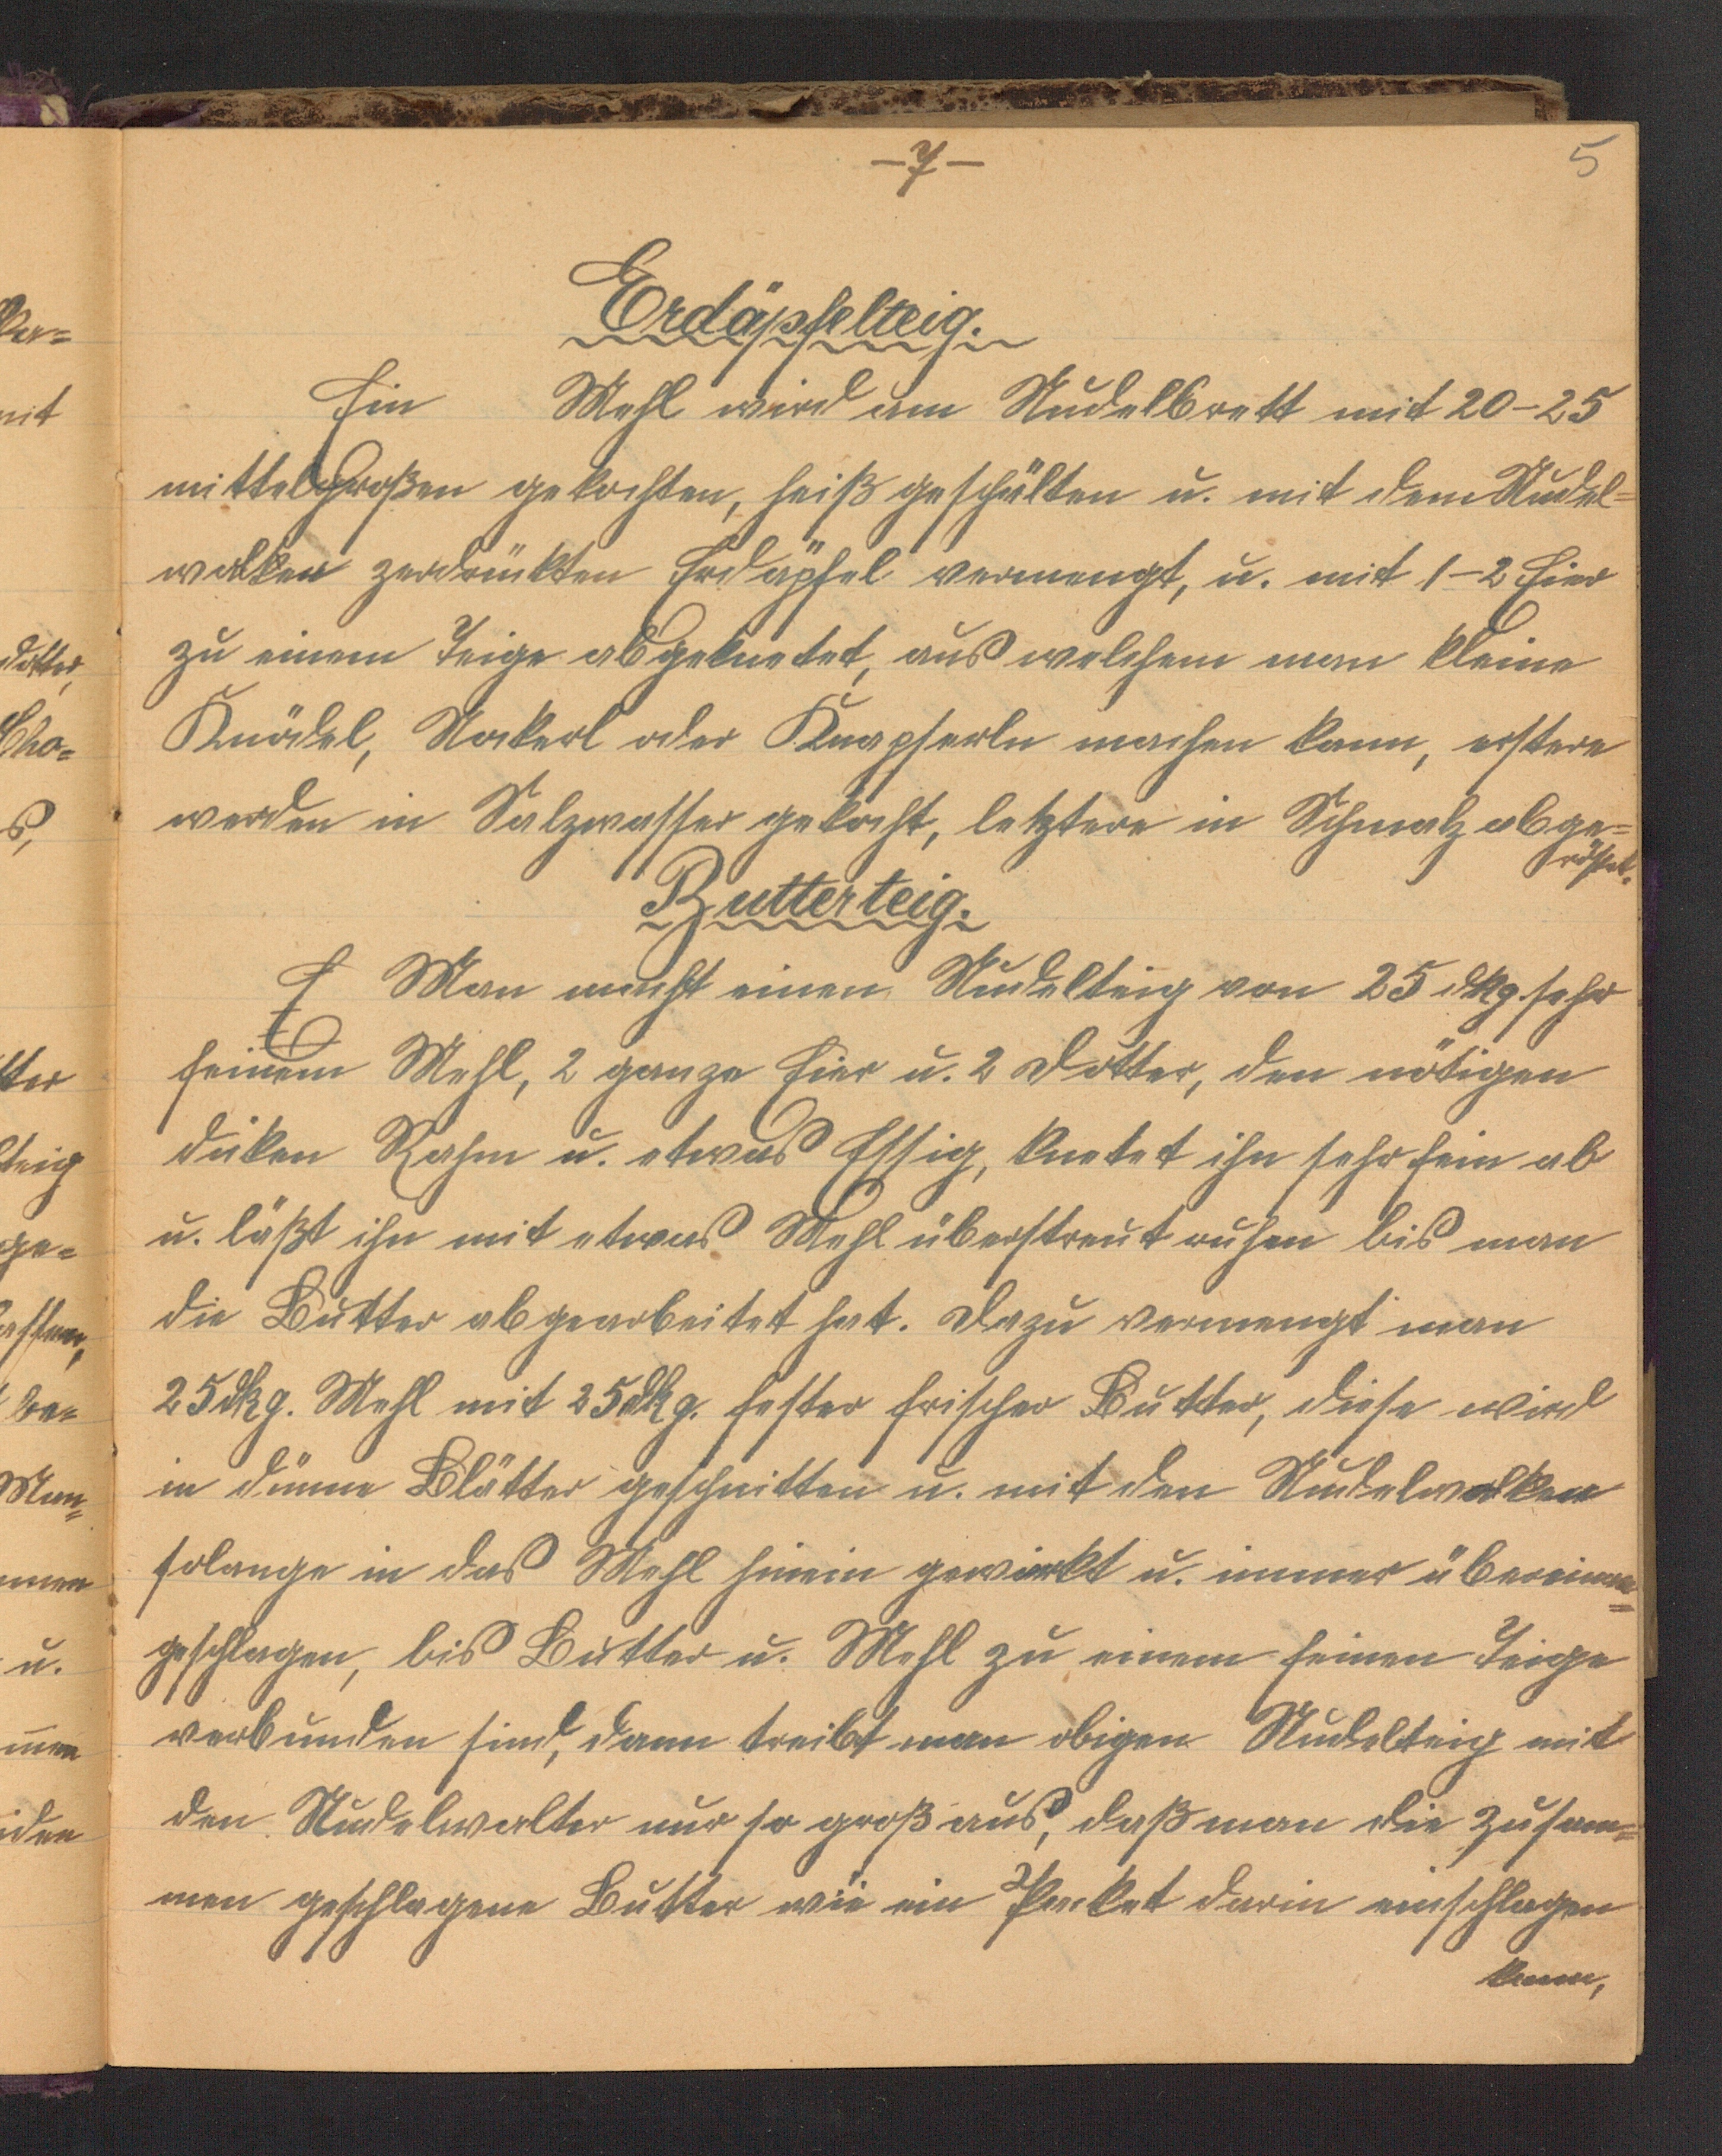 -7-
5
Erdäpfelteig.
Ein Mehl wird am Nudelbrett mit 20-25
mittelgroßen gekochten, heiß geschälten u. mit dem Nudel=
walker zerdrückten Erdäpfel vermengt, u. mit 1-2 Eier
zu einem Teige abgeknetet, aus welchem man kleine
Knödel, Nockerl oder Knapferln machen kann, erstere
werden in Salzwasser gekocht, letztere in Schmalz abge=
röstet.
Butterteig.
Man macht einen Nudelteig von 25 dkg. sehr
feinem Mehl, 2 ganze Eier u. 2 Dotter, den nötigen
dicken Rahm u. etwas Essig, knetet ihn sehr fein ab
u. läßt ihn mit etwas Mehl überstreut ruhen bis man
die Butter abgearbeitet hat. Dazu vermengt man
25dkg. Mehl mit 25dkg. fester frischer Butter, diese wird
in dünne Blätter geschnitten u. mit den Nudelwalker
solange in das Mehl hinein gewirkt u. immer übereinan=
geschlagen, bis Butter u. Mehl zu einem feinen Teige
verbunden sind, dann treibt man obigen Nudelteig mit
den Nudelwalker nur so groß aus, daß man die zusam=
men geschlagene Butter wie ein Packet darin einschlagen
kann,